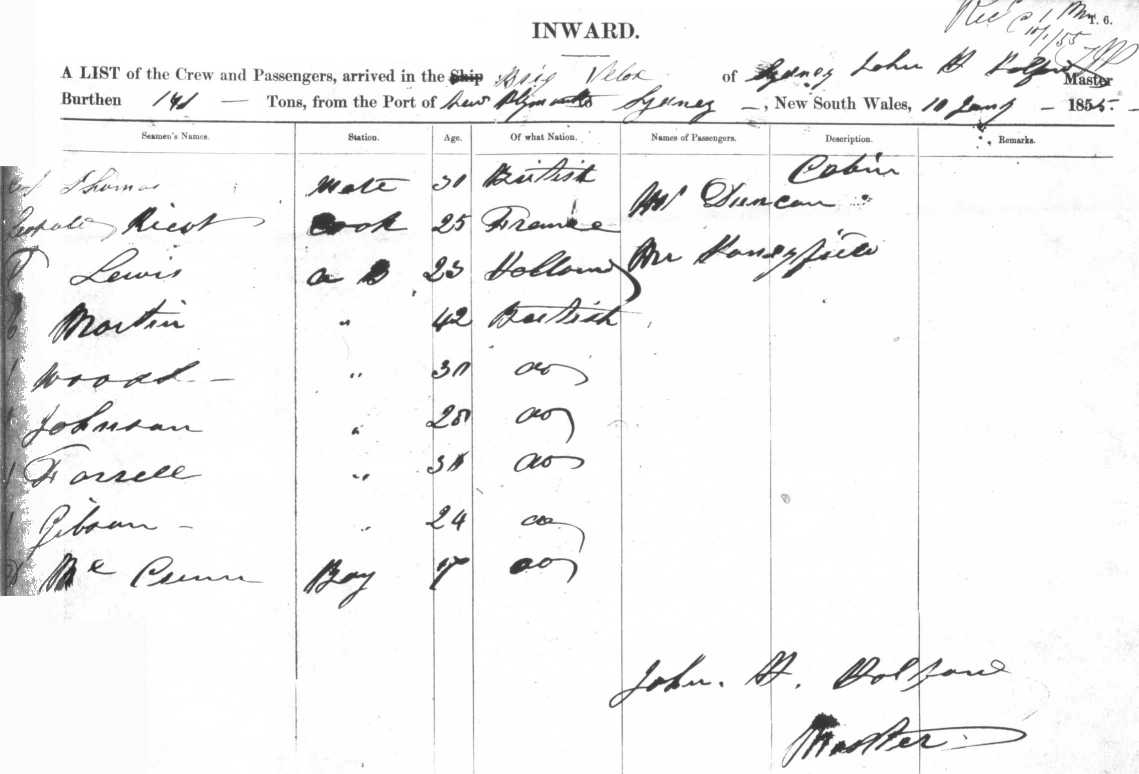 T. 6.
INWARD.
A LIST of the Crew and Passengers, arrived in the Ship Brig Velox of Sydney John H Master
Burthen 141 — Tons, from the Port of New Plymouth Sydney —, New South Wales, 10 Jany — 1855.
Seamen's Names. Station. Age. Of what Nation. Names of Passengers. Description. Remarks.
Thomas Mate 30 British Cabin
Cook 25 France Mr Duncan
Lewis A B 23 Holland Mr
Martin " 42 British
Woods — " 30 do
Johnson " 20 do
Farrell " 30 do
Gibson — " 24 do
Mc Boy 17 do
John. H.
Master